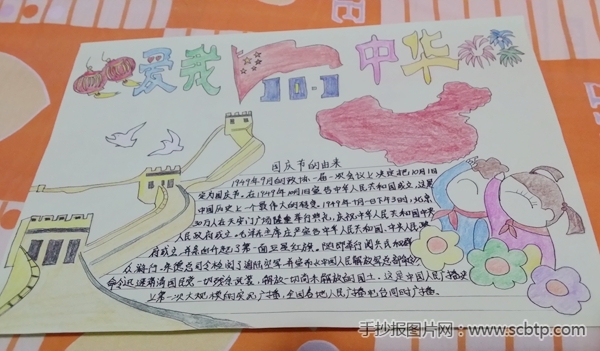 爱我
10·1
中华
国庆节的由来
1949年9月的政协一届一次会议上决定把10月1日
定为国庆节。在1949年10月1日宣告中华人民共和国成立,这是
中国历史上一个最伟大的转变。1949年10月1日下午3时,北京
30万人在天安门广场隆重举行典礼,庆祝中华人民共和国中央
人民政府成立。毛泽东主席庄严宣告中华人民共和国、中央人民
府成立,并亲自升起了第一面五星红旗。随即举行阅兵
众游行。朱德总司令检阅了海陆空军,并宣布中国人民解放军总部
命令迅速肃清国民党一切残余武装,解放一切尚未解放的国土。这是中国人民广播史
上第一次大规模的实况广播,全国各地人民广播电台同时广播。
手抄报图片网:www.scbtp.com